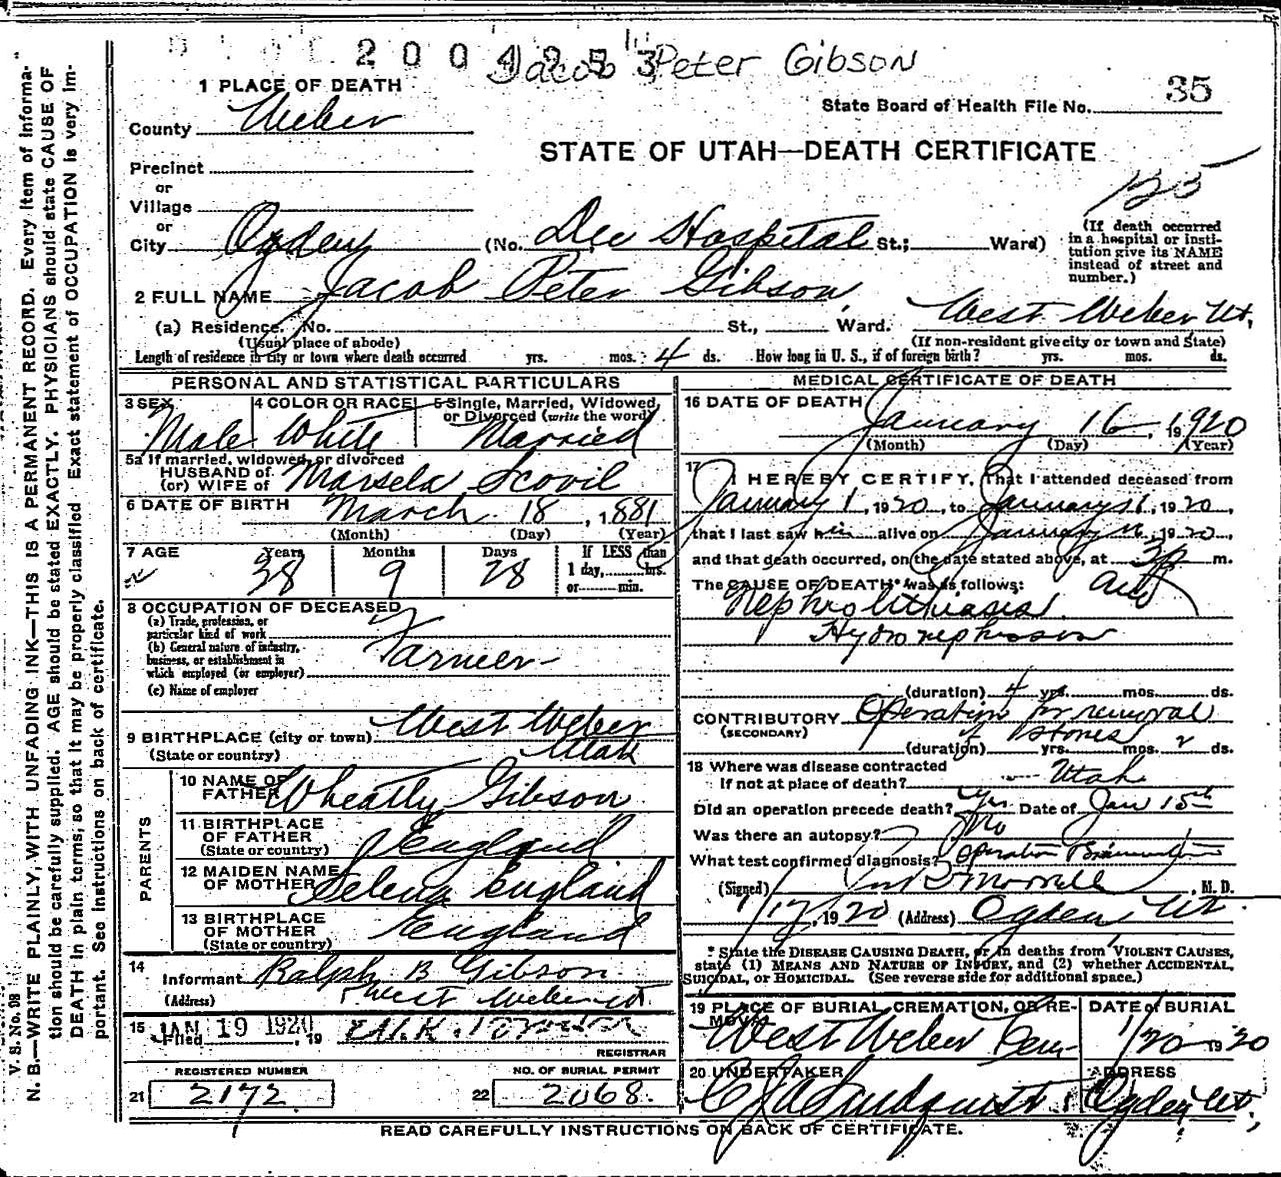 2004253
Jacob Peter Gibson
35
1 PLACE OF DEATH
State Board of Health File No.
County Weber
STATE OF UTAH—DEATH CERTIFICATE
Precinct
or
Village
or
125
City Ogden (No. Dee Hospital St.; Ward)
(If death occurred in a hospital or insti-
tution give its NAME
instead of street and
number.)
2 FULL NAME Jacob Peter Gibson
(a) Residence. No. St., Ward. West Weber Ut.
(Usual place of abode) (If non-resident give city or town and State)
Length of residence in city or town where death occurred yrs. mos. 4 ds. How long in U. S., if of foreign birth? yrs. mos. ds.
PERSONAL AND STATISTICAL PARTICULARS
3 SEX 4 COLOR OR RACE 5 Single, Married, Widowed,
or Divorced (write the word)
Male White Married
5a If married, widowed, or divorced
HUSBAND of
(or) WIFE of Marsela Scovil
6 DATE OF BIRTH March 18, 1881
(Month) (Day) (Year)
7 AGE Years Months Days If LESS than
38 9 28 1 day, hrs.
or min.
8 OCCUPATION OF DECEASED
(a) Trade, profession, or
particular kind of work
(b) General nature of industry,
business, or establishment in
which employed (or employer)
Farmer
(c) Name of employer
9 BIRTHPLACE (city or town) West Weber
(State or country) Utah
PARENTS
10 NAME OF
FATHER Wheatly Gibson
11 BIRTHPLACE
OF FATHER England
(State or country)
12 MAIDEN NAME
OF MOTHER Selena England
13 BIRTHPLACE
OF MOTHER England
(State or country)
14
Informant Ralph B Gibson
(Address) West Weber Ut.
15 JAN 19 1920
Filed , 19
REGISTRAR
REGISTERED NUMBER NO. OF BURIAL PERMIT
21 2172 22 2068
MEDICAL CERTIFICATE OF DEATH
16 DATE OF DEATH
January 16, 1920
(Month) (Day) (Year)
17
I HEREBY CERTIFY, That I attended deceased from
January 1, 1920, to January 16, 1920,
that I last saw him alive on January 16, 1920,
and that death occurred, on the date stated above, at 3p m.
The CAUSE OF DEATH* was as follows:
Nephrolithiasis and
Hydronephrosis
(duration) 4 yrs. mos. ds.
CONTRIBUTORY Operation for removal
(SECONDARY) of stones
(duration) yrs. mos. 2 ds.
18 Where was disease contracted
If not at place of death? Utah
Did an operation precede death? Yes Date of Jan 15th
Was there an autopsy? No
What test confirmed diagnosis? Operation
(Signed) Morrell, M. D.
1/17, 1920 (Address) Ogden, Ut.
* State the DISEASE CAUSING DEATH, or in deaths from VIOLENT CAUSES,
state (1) MEANS AND NATURE OF INJURY, and (2) whether ACCIDENTAL,
SUICIDAL, or HOMICIDAL. (See reverse side for additional space.)
19 PLACE OF BURIAL, CREMATION, OR RE-
MOVAL DATE of BURIAL
West Weber Cem 1/20 1920
20 UNDERTAKER ADDRESS
Lindquist Ogden, Ut.
READ CAREFULLY INSTRUCTIONS ON BACK OF CERTIFICATE.
V. S. No. 98
N. B.—WRITE PLAINLY, WITH UNFADING INK—THIS IS A PERMANENT RECORD. Every item of informa-
tion should be carefully supplied. AGE should be stated EXACTLY. PHYSICIANS should state CAUSE OF
DEATH in plain terms, so that it may be properly classified. Exact statement of OCCUPATION is very im-
portant. See instructions on back of certificate.